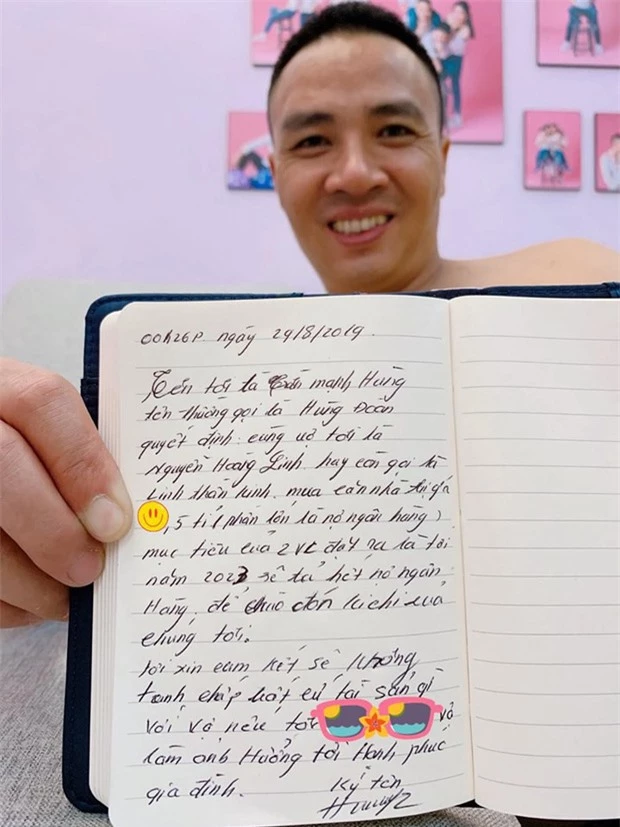 00h26p ngày 29/8/2019.
Tên tôi là Trần mạnh Hùng
tên thường gọi là Hùng Đoàn
quyết định: cùng vợ tôi là
Nguyễn Hoàng Linh hay còn gọi là
Linh thần kinh mua căn nhà trị giá
,5 tỉ ( phần lớn là nợ ngân hàng )
mục tiêu của 2VC đặt ra là tới
năm 2023 sẽ trả hết nợ ngân
Hàng để chào đón kichi của
chúng tôi.
tôi xin cam kết sẽ không
tranh chấp bất cứ tài sản gì
với vợ nếu tôi
làm ảnh Hưởng tới Hạnh phúc
gia đình. Ký tên